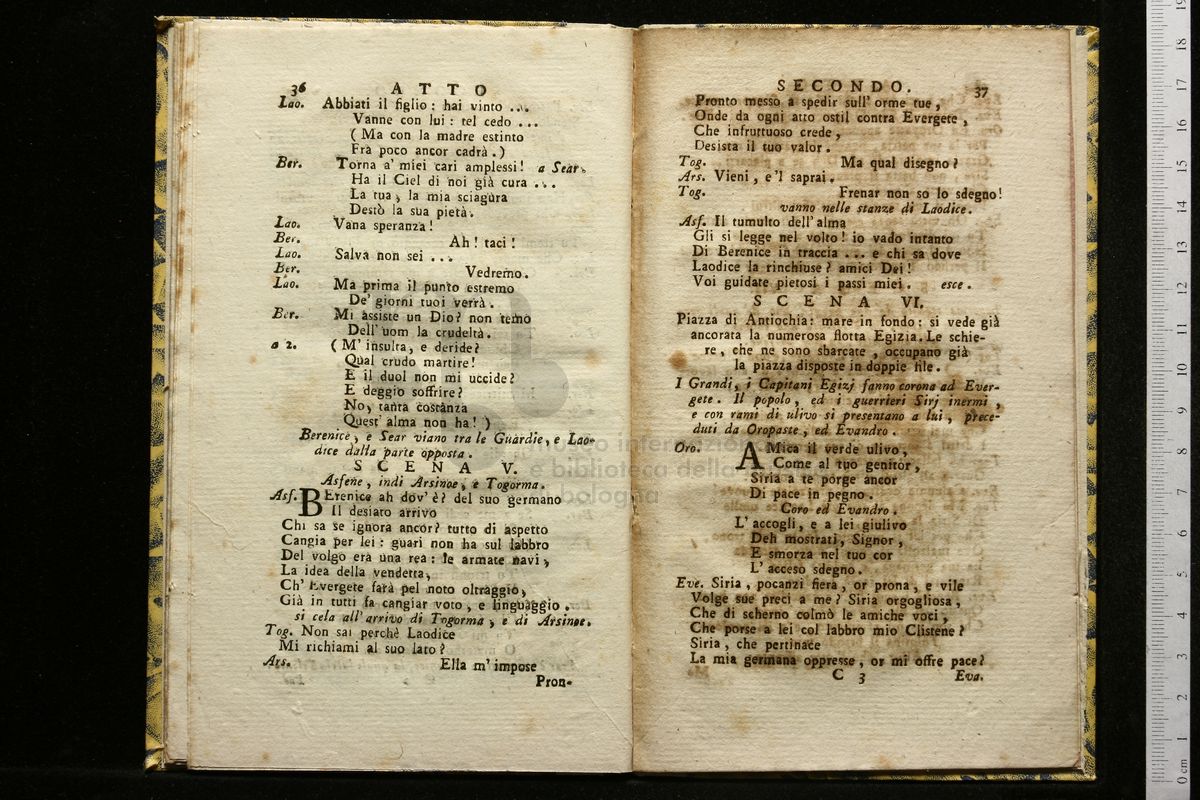 36 ATTO
Lao. Abbiati il figlio: hai vinto ...
Vanne con lui: tel cedo ...
( Ma con la madre estinto
Fra poco ancor cadrà. )
Ber. Torna a' miei cari amplessi! a Sear.
Ha il Ciel di noi già cura ...
La tua, la mia sciagura
Destò la sua pietà.
Lao. Vana speranza!
Ber. Ah! taci!
Lao. Salva non sei ...
Ber. Vedremo.
Lao. Ma prima il punto estremo
De' giorni tuoi verrà.
Ber. Mi assiste un Dio? non temo
Dell' uom la crudeltà.
a 2. ( M' insulta, e deride?
Qual crudo martire!
E il duol non mi uccide?
E deggio soffrire?
No, tanta costanza
Quest' alma non ha! )
Berenice, e Sear viano tra le Guardie, e Lao-
dice dalla parte opposta.
SCENA V.
Asfene, indi Arsinoe, e Togorma.
Asf. BErenice ah dov' è? del suo germano
Il desiato arrivo
Chi sa se ignora ancor? tutto di aspetto
Cangia per lei: guari non ha sul labbro
Del volgo era una rea: le armate navi,
La idea della vendetta,
Ch' Evergete farà pel noto oltraggio,
Già in tutti fa cangiar voto, e linguaggio.
si cela all' arrivo di Togorma, e di Arsinoe.
Tog. Non sai perchè Laodice
Mi richiami al suo lato?
Ars. Ella m' impose
Pron-
SECONDO. 37
Pronto messo a spedir sull' orme tue,
Onde da ogni atto ostil contra Evergete,
Che infruttuoso crede,
Desista il tuo valor.
Tog. Ma qual disegno?
Ars. Vieni, e 'l saprai.
Tog. Frenar non so lo sdegno!
vanno nelle stanze di Laodice.
Asf. Il tumulto dell' alma
Gli si legge nel volto! io vado intanto
Di Berenice in traccia ... e chi sa dove
Laodice la rinchiuse? amici Dei!
Voi guidate pietosi i passi miei. esce.
SCENA VI.
Piazza di Antiochia: mare in fondo: si vede già
ancorata la numerosa flotta Egizia. Le schie-
re, che ne sono sbarcate, occupano già
la piazza disposte in doppie file.
I Grandi, i Capitani Egizj fanno corona ad Ever-
gete. Il popolo, ed i guerrieri Sirj inermi,
e con rami di ulivo si presentano a lui, prece-
duti da Oropaste, ed Evandro.
Oro. AMica il verde ulivo,
Come al tuo genitor,
Siria a te porge ancor
Di pace in pegno.
Coro ed Evandro.
L' accogli, e a lei giulivo
Deh mostrati, Signor,
E smorza nel tuo cor
L' acceso sdegno.
Eve. Siria, pocanzi fiera, or prona, e vile
Volge sue preci a me? Siria orgogliosa,
Che di scherno colmò le amiche voci,
Che porse a lei col labbro mio Clistene?
Siria, che pertinace
La mia germana oppresse, or mi offre pace?
C 3 Eva.
museo internazionale
e biblioteca della musica
bologna
0 cm 1 2 3 4 5 6 7 8 9 10 11 12 13 14 15 16 17 18 19